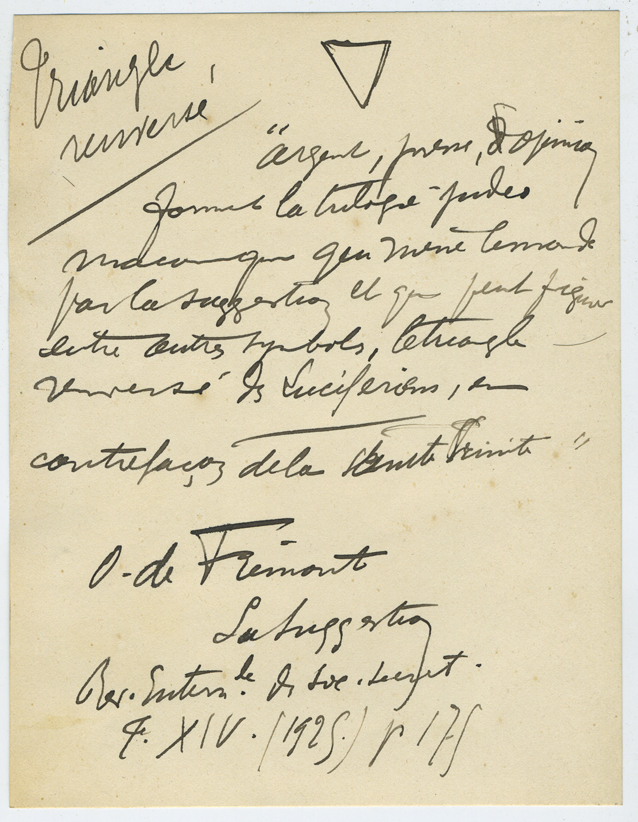 Triangle
renversé
"Argent, presse, & opinion
forment la trilogie judeo
maçonnique qui mène le monde
par la suggestion et que peut figurer
entre autres symbols, le triangle
renversé des Luciferiens, en
contrefaçon de la Sainte Trinité"
O. de Fremont
La Suggestion
Rev. Intern.le des soc. secret.
T. XIV. (1925.) p 175